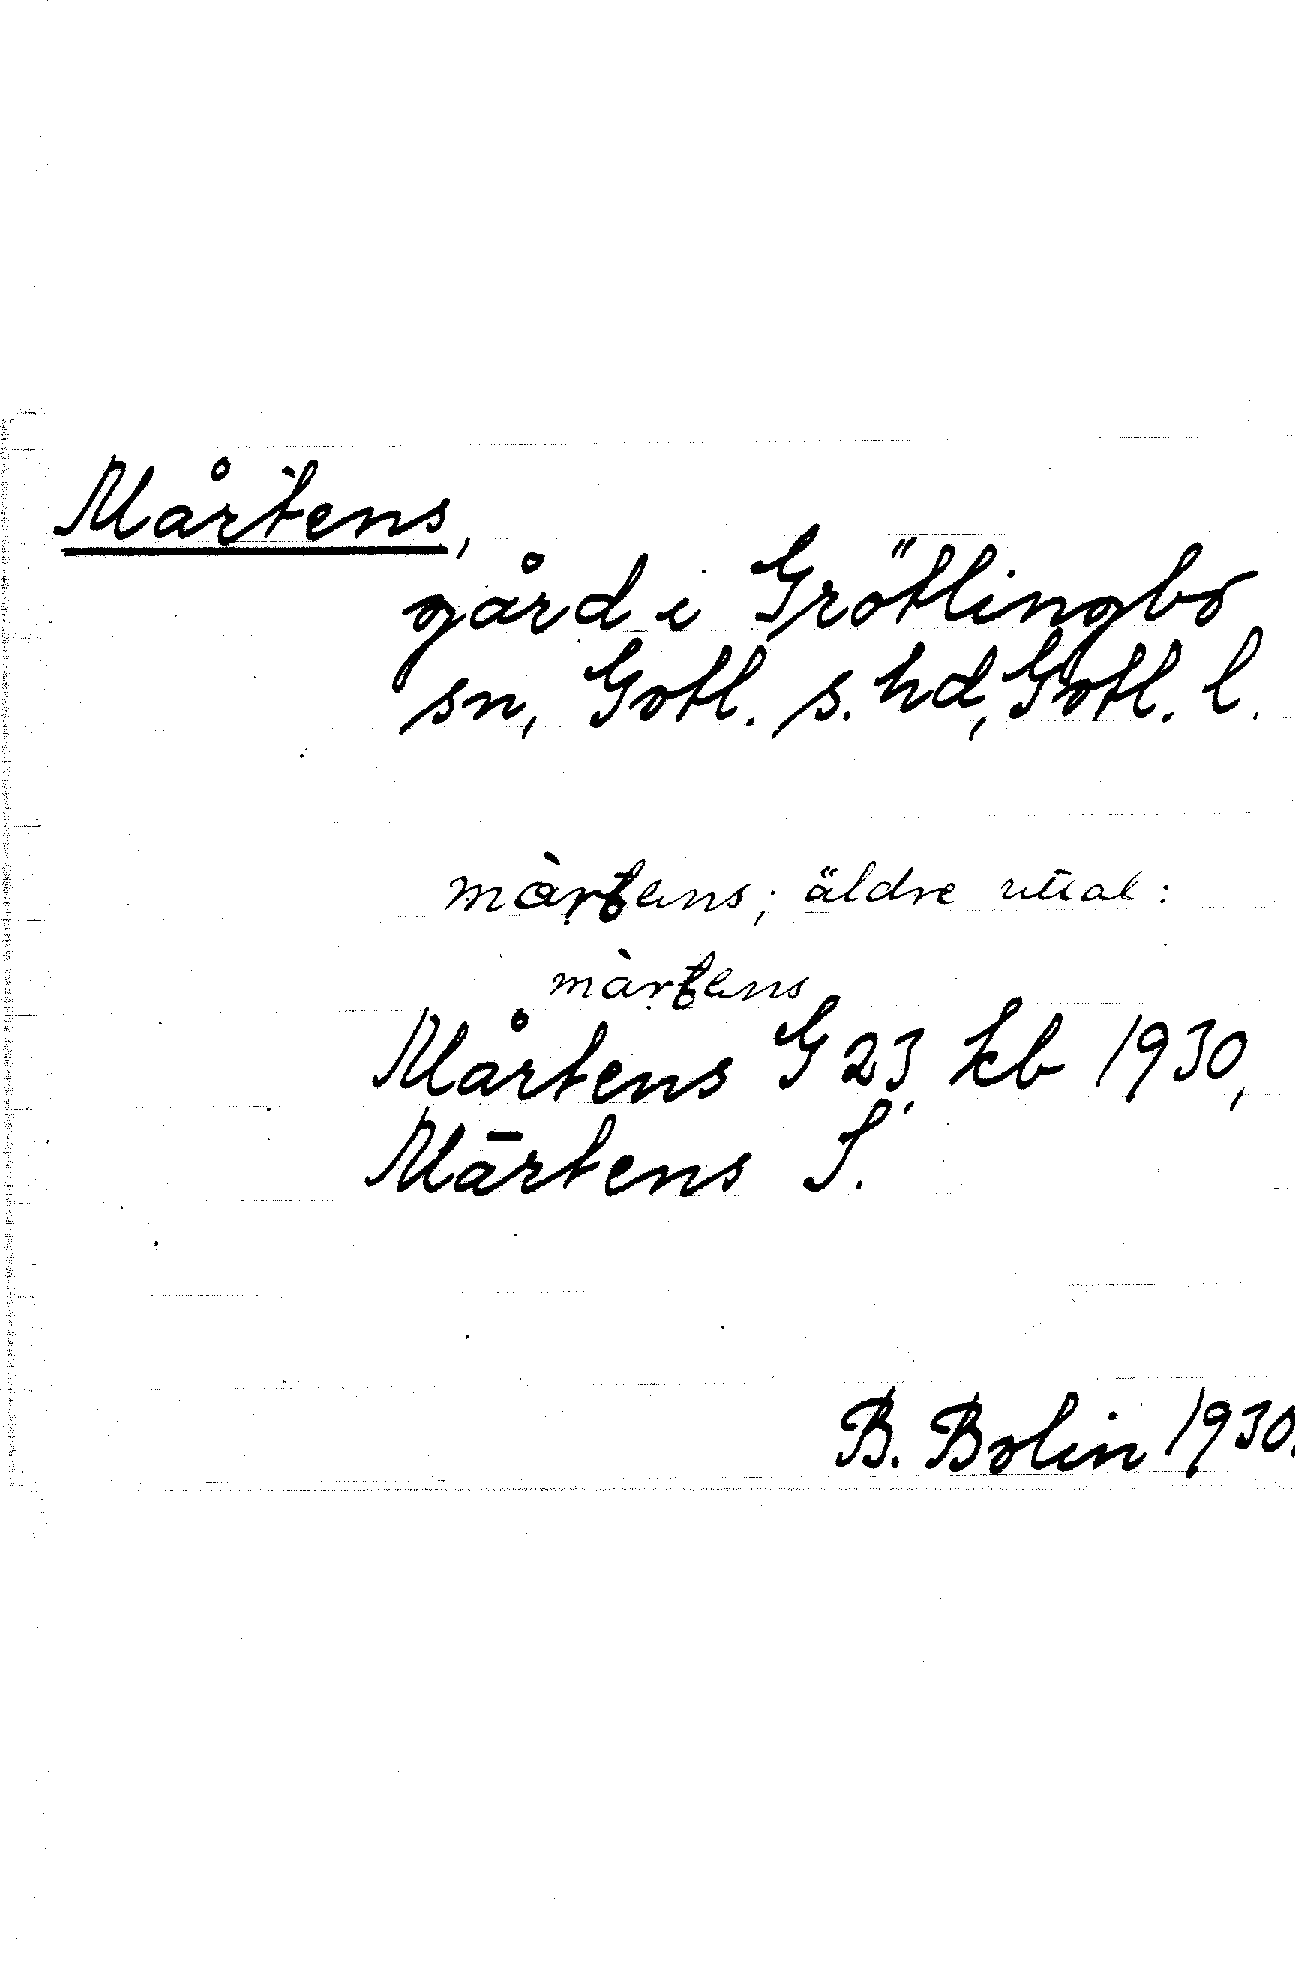 Mårtens,
gård i Grötlingbo
sn, Gotl. s. hd, Gotl. l.
màrtens; äldre uttal:
màrtens
Mårtens G 23, kb 1930,
Mārtens S.
B. Bolin 1930.